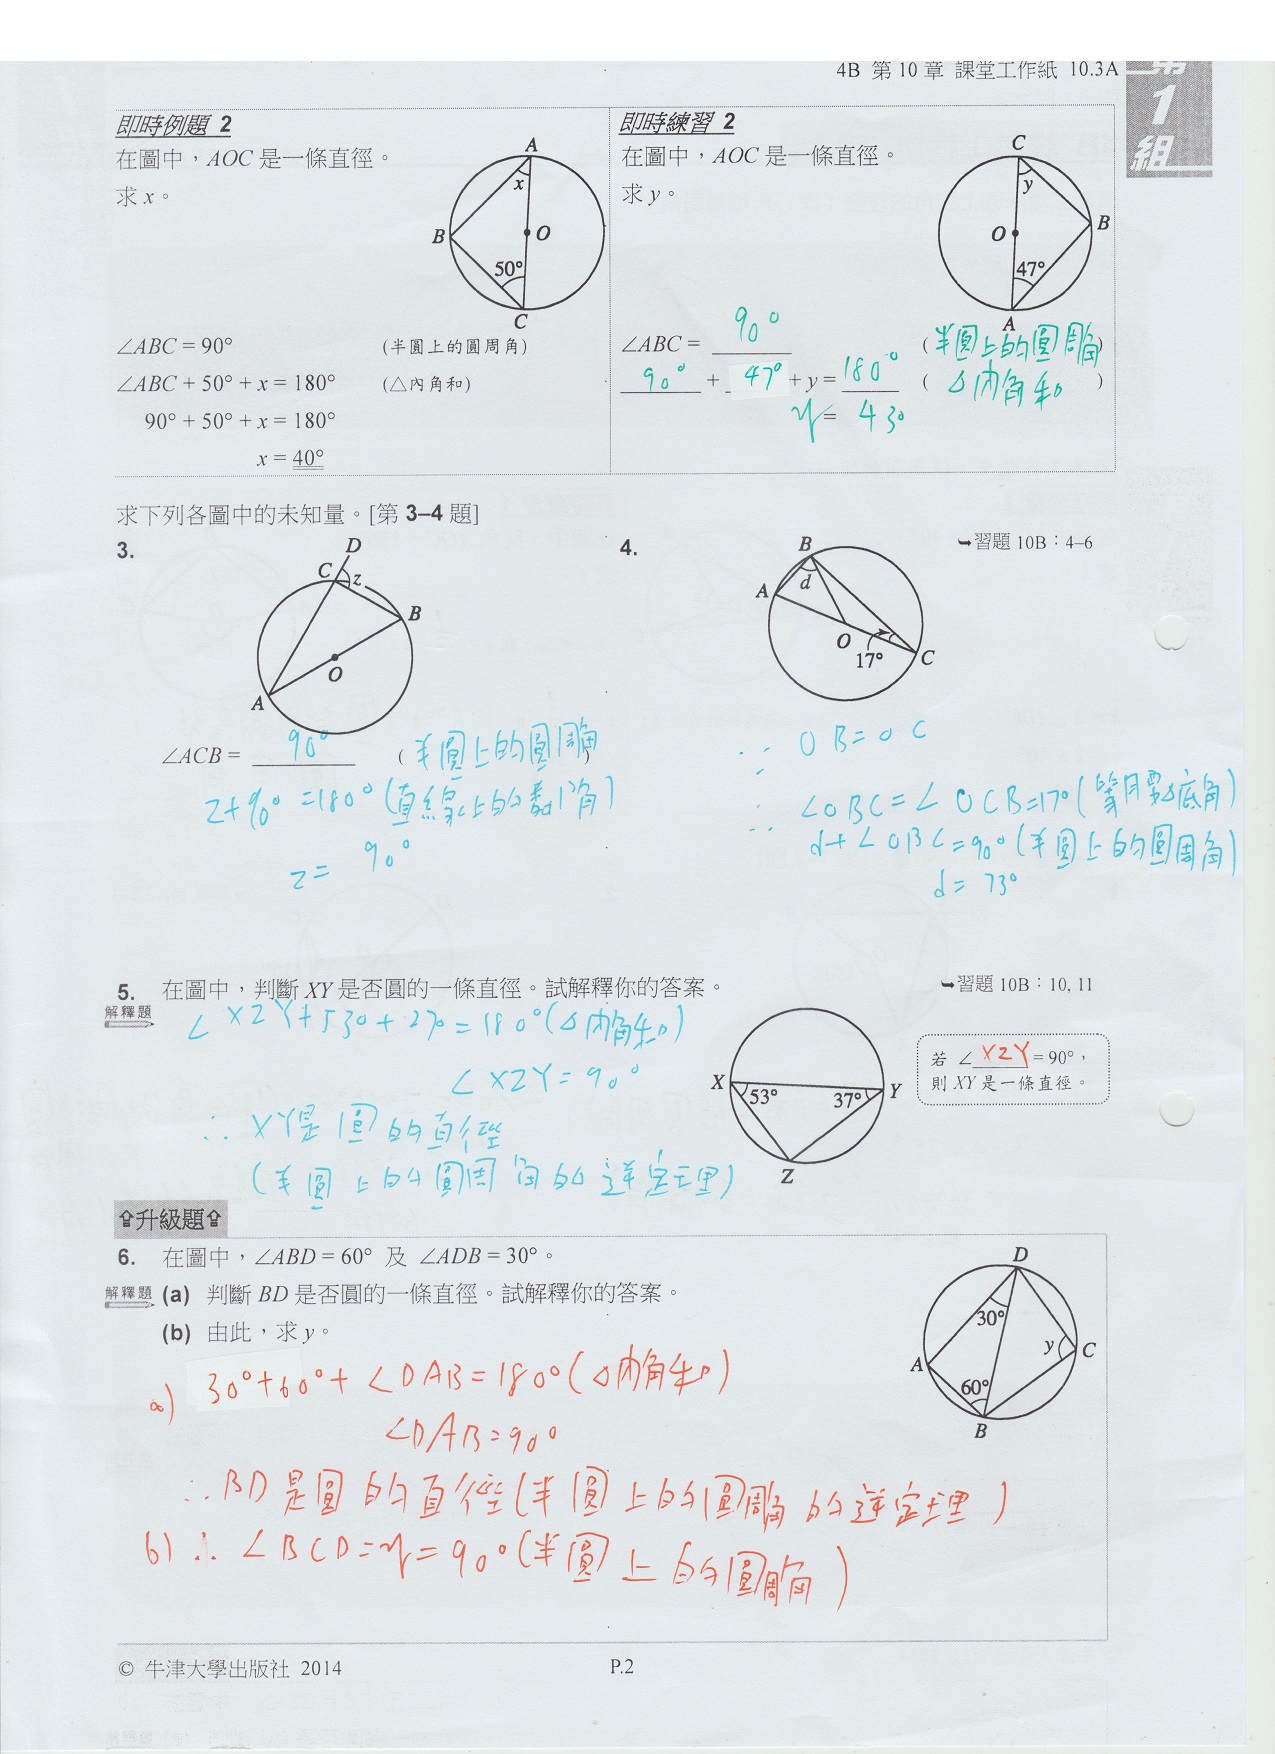 4B 第 10 章 課堂工作紙 10.3A
第
1
組
即時例題 2
在圖中，AOC 是一條直徑。
求 x。
A
x
B
O
50°
C
∠ABC = 90° (半圓上的圓周角)
∠ABC + 50° + x = 180° (△內角和)
90° + 50° + x = 180°
x = 40°
即時練習 2
在圖中，AOC 是一條直徑。
求 y。
C
y
B
O
47°
A
∠ABC = 90° (半圓上的圓周角)
90° + 47° + y = 180° (△內角和)
y = 43°
求下列各圖中的未知量。[第 3–4 題]
3.
D
C
z
B
O
A
∠ACB = 90° (半圓上的圓周角)
z+90°=180°(直線上的鄰角)
z= 90°
4.
➥習題 10B：4–6
B
A
d
O
17°
C
∵ OB=OC
∴ ∠OBC=∠OCB=17°(等腰△底角)
d+∠OBC=90°(半圓上的圓周角)
d= 73°
5. 在圖中，判斷 XY 是否圓的一條直徑。試解釋你的答案。
➥習題 10B：10, 11
解釋題
∠XZY+53°+37°=180°(△內角和)
∠XZY=90°
∴ XY是圓的直徑
(半圓上的圓周角的逆定理)
X
Y
53°
37°
Z
若 ∠XZY = 90°，
則 XY 是一條直徑。
⇧升級題⇧
6. 在圖中，∠ABD = 60° 及 ∠ADB = 30°。
解釋題 (a) 判斷 BD 是否圓的一條直徑。試解釋你的答案。
(b) 由此，求 y。
D
30°
y
C
A
60°
B
a) 30°+60°+∠DAB=180°(△內角和)
∠DAB=90°
∴BD是圓的直徑(半圓上的圓周角的逆定理)
b) ∴ ∠BCD=y=90°(半圓上的圓周角)
© 牛津大學出版社 2014
P.2